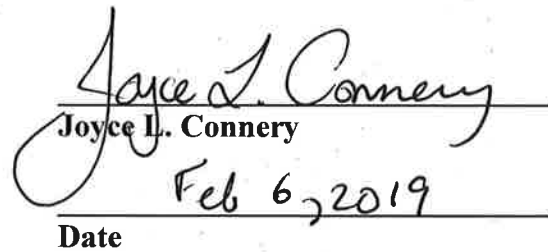 Joyce L. Connery
Joyce L. Connery
Feb 6, 2019
Date